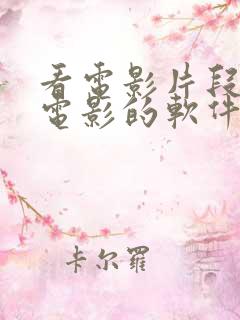 看電影片段
電影的軟件
卡尔羅